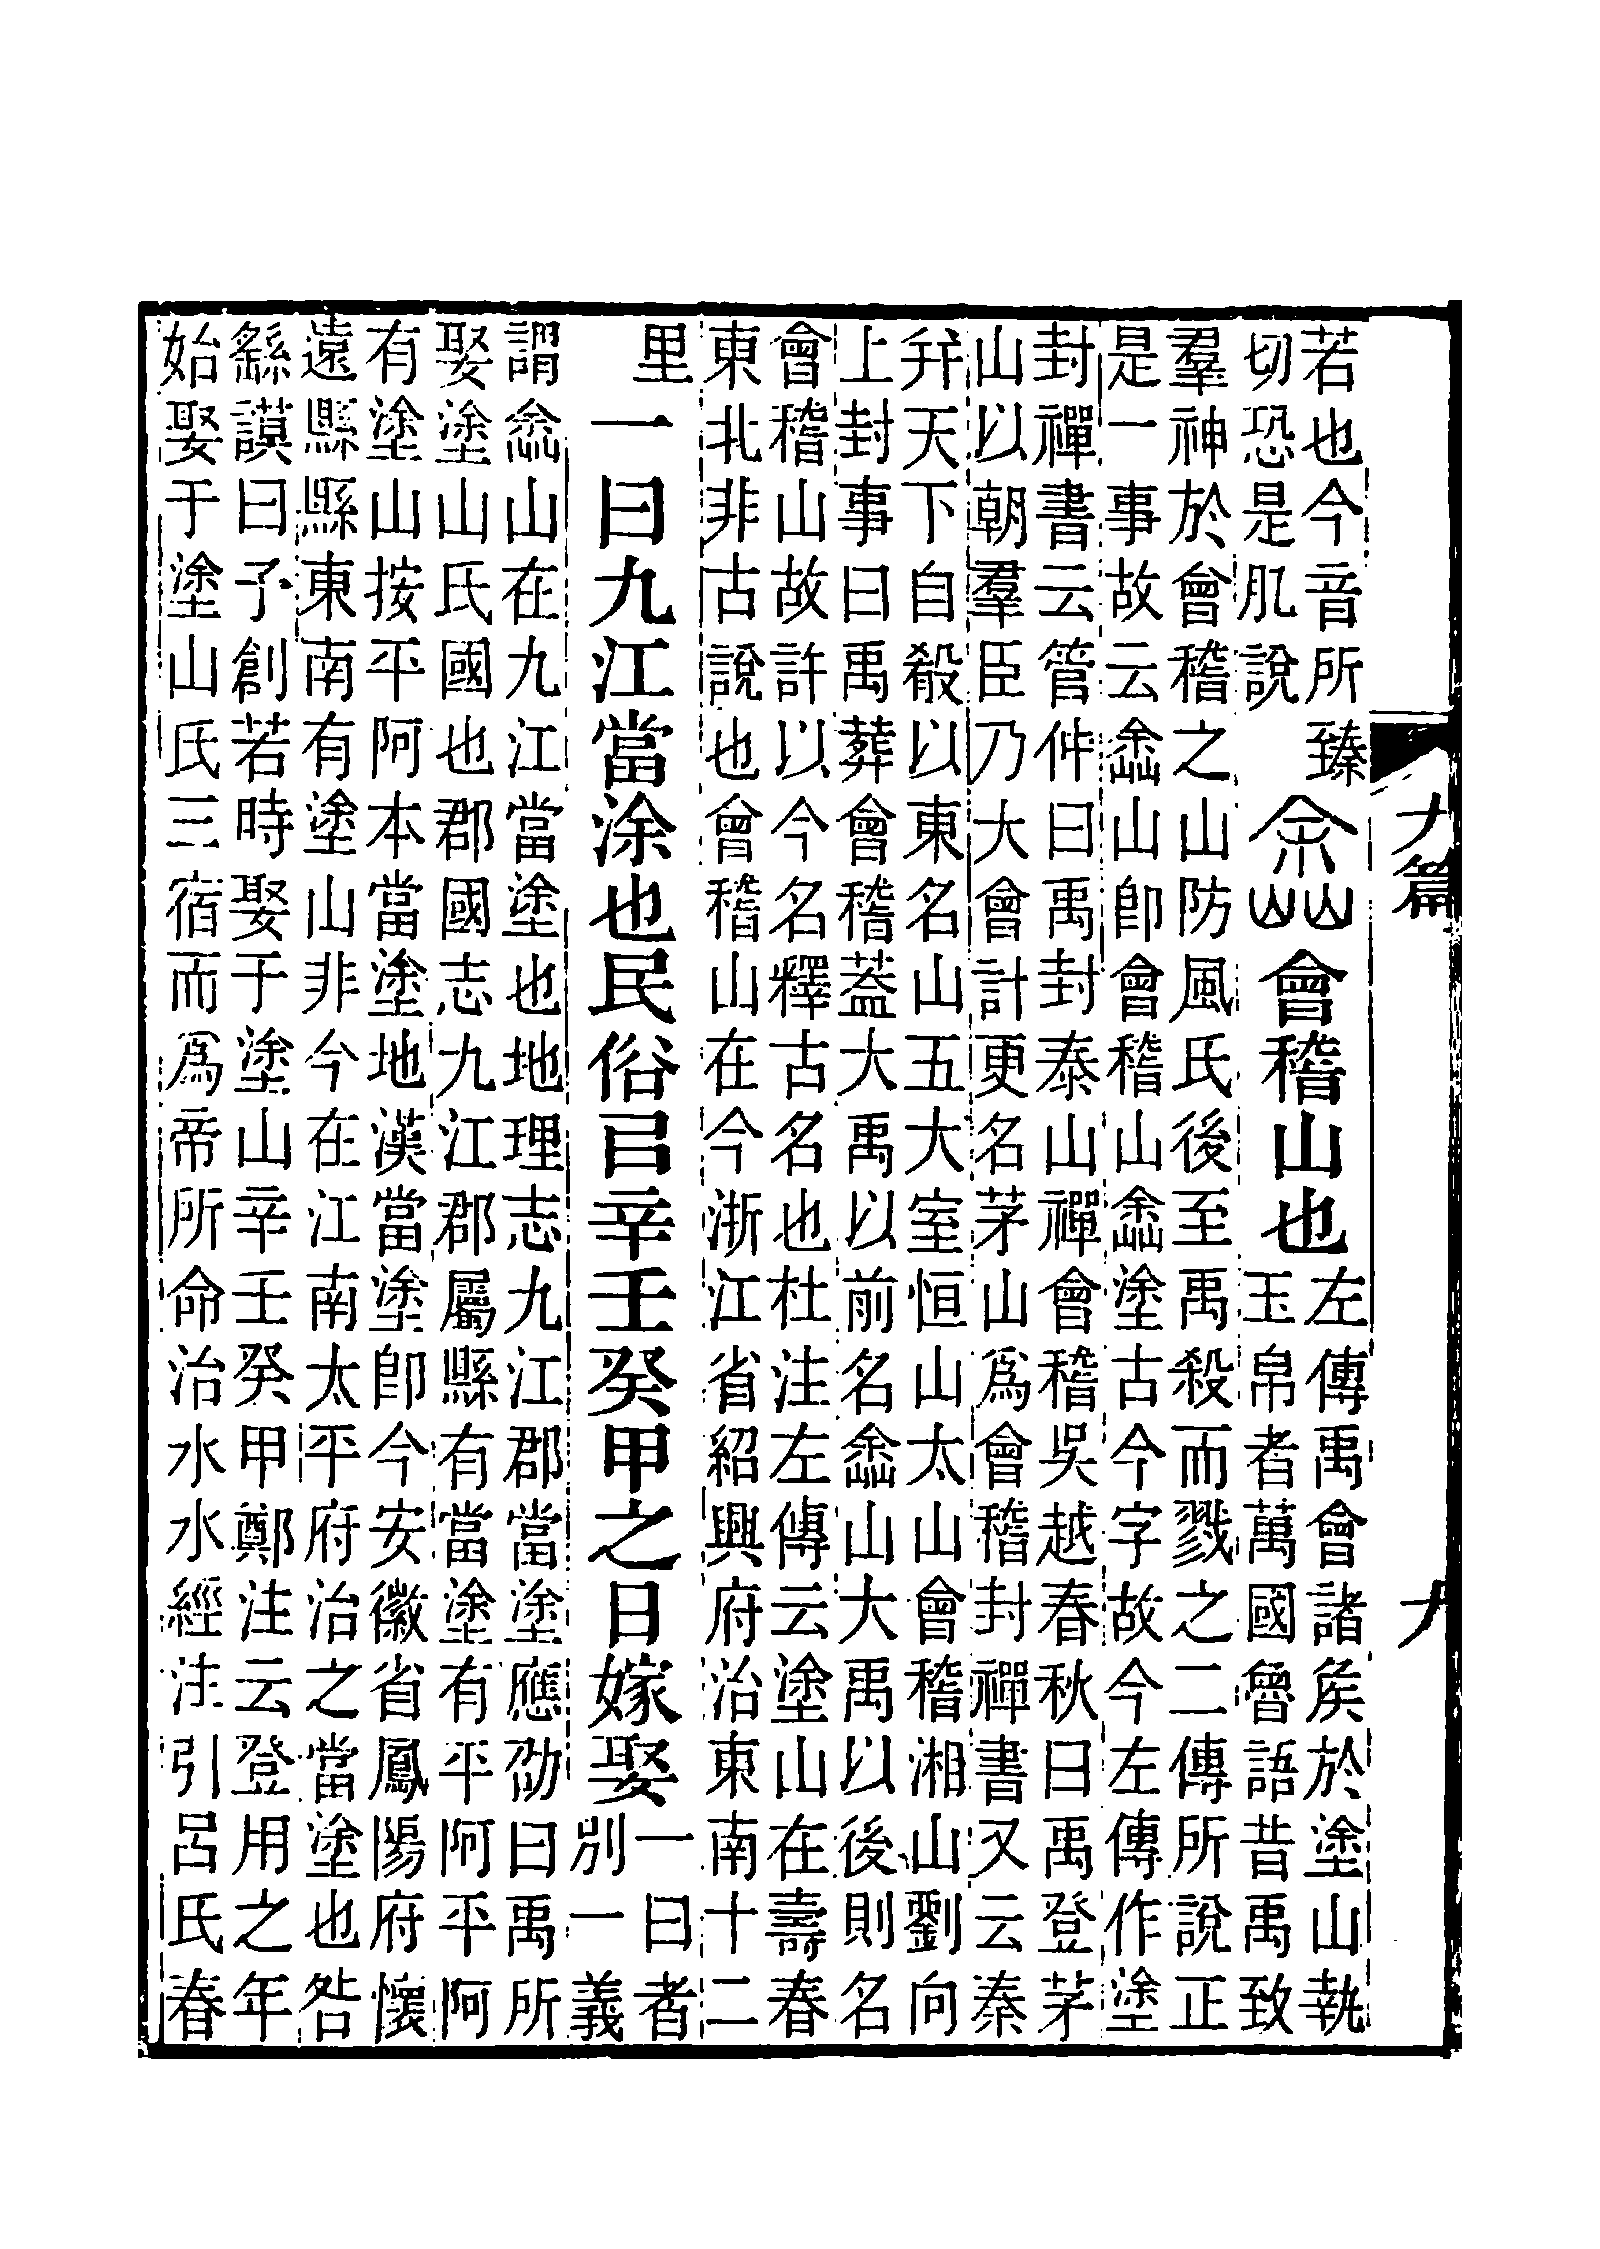 若也今音所臻
切恐是肊說
嵞
會稽山也
左傳禹會諸矦於塗山執
玉帛者萬國魯語昔禹致
羣神於會稽之山防風氏後至禹殺而戮之二傳所說正
是一事故云嵞山卽會稽山嵞塗古今字故今左傳作塗
封禪書云管仲曰禹封泰山禪會稽吳越春秋曰禹登茅
山以朝羣臣乃大會計更名茅山爲會稽封禪書又云秦
幷天下自殽以東名山五大室恒山太山會稽湘山劉向
上封事曰禹葬會稽蓋大禹以前名嵞山大禹以後則名
會稽山故許以今名釋古名也杜注左傳云塗山在壽春
東北非古說也會稽山在今浙江省紹興府治東南十二
里
一曰九江當涂也民俗㠯辛壬癸甲之日嫁娶
一曰者
別一義
謂嵞山在九江當塗也地理志九江郡當塗應劭曰禹所
娶塗山氏國也郡國志九江郡屬縣有當塗有平阿平阿
有塗山按平阿本當塗地漢當塗卽今安徽省鳳陽府懷
遠縣縣東南有塗山非今在江南太平府治之當塗也咎
繇謨曰予創若時娶于塗山辛壬癸甲鄭注云登用之年
始娶于塗山氏三宿而爲帝所命治水水經注引呂氏春
九篇
九